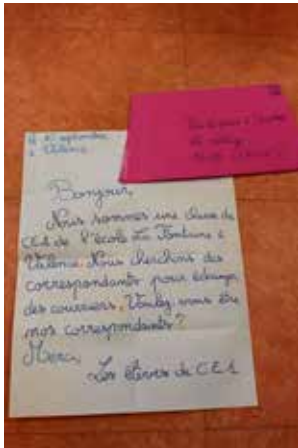 septembre
à Valence
Bonjour,
Nous sommes une classe de
de l'école La Fontaine à
Valence. Nous cherchons des
correspondants pour échanger
des courriers. Voulez-vous être
nos correspondants ?
Merci,
Les élèves de CE1